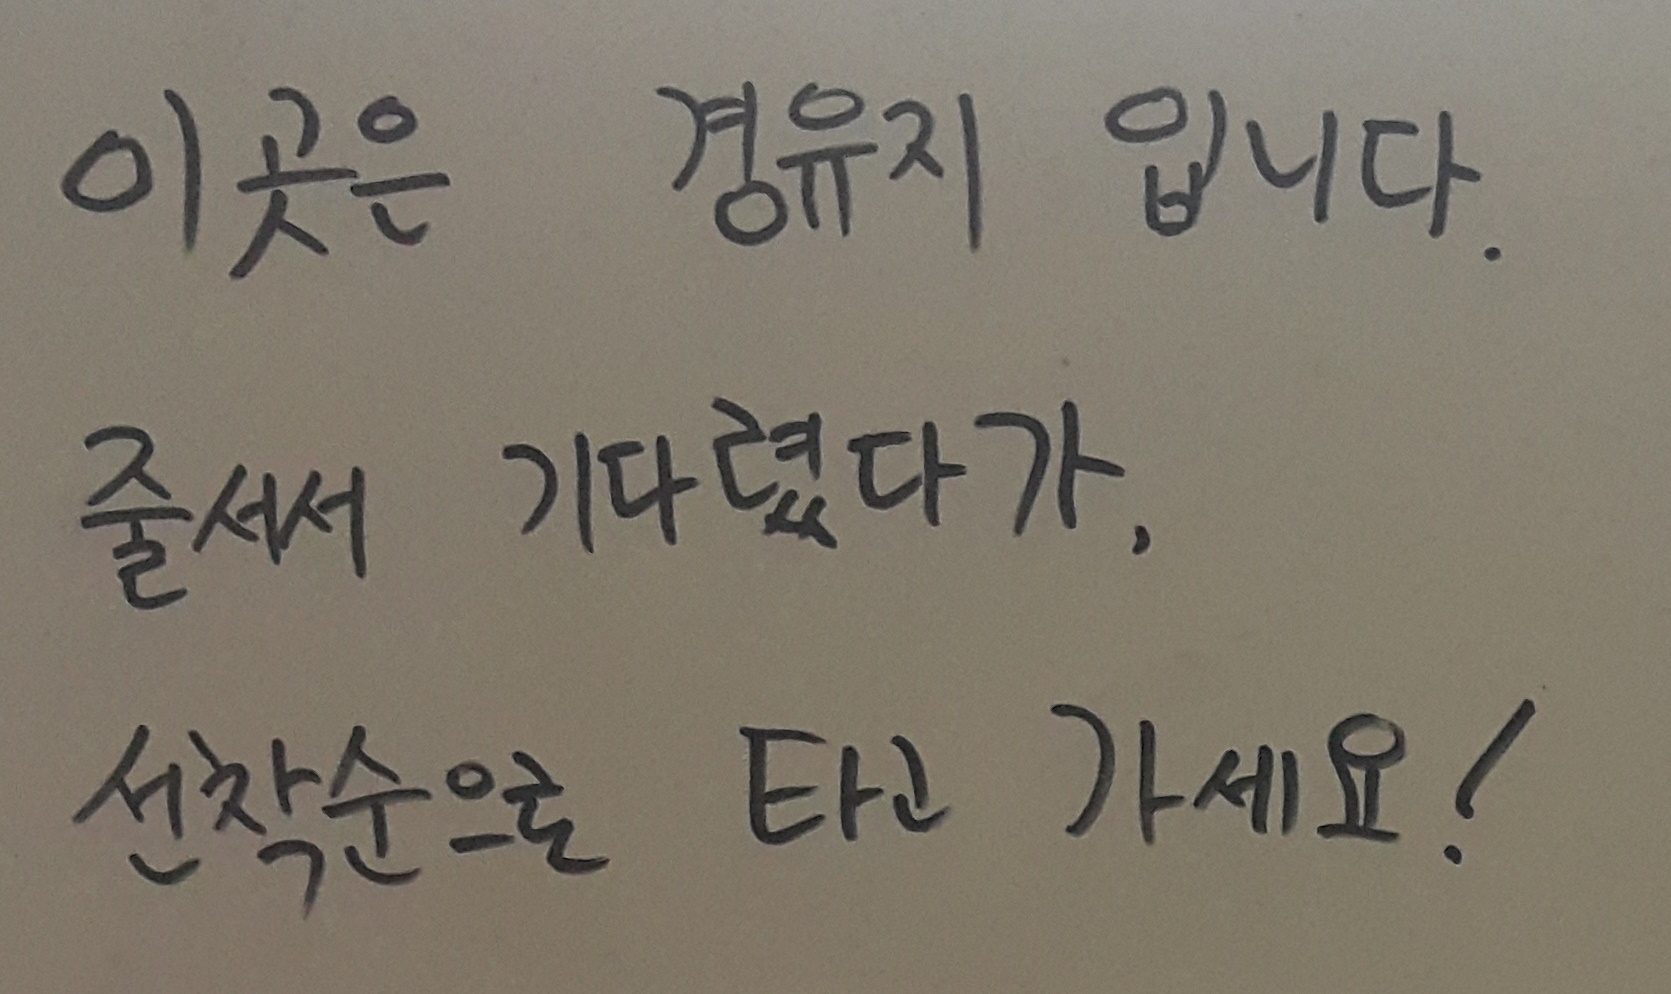 이곳은 경유지 입니다.
줄서서 기다렸다가,
선착순으로 타고 가세요!